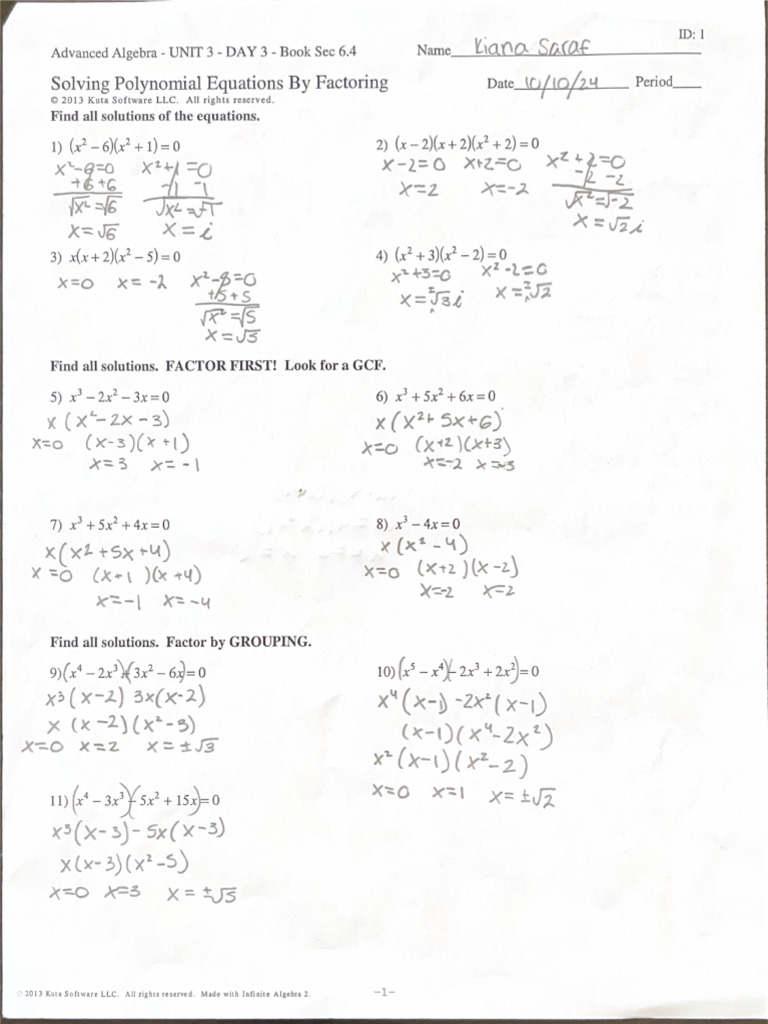 ID: 1
Advanced Algebra - UNIT 3 - DAY 3 - Book Sec 6.4 Name Kiana Saraf
Solving Polynomial Equations By Factoring Date 10/10/24 Period
© 2013 Kuta Software LLC. All rights reserved.
Find all solutions of the equations.
1) (x² − 6)(x² + 1) = 0
x² − 6 = 0 x² + 1 = 0
+6 +6 −1 −1
√x² = √6 √x² = √−1
x = √6 x = i
2) (x − 2)(x + 2)(x² + 2) = 0
x − 2 = 0 x + 2 = 0 x² + 2 = 0
−2 −2
x = 2 x = −2 √x² = √−2
x = √2 i
3) x(x + 2)(x² − 5) = 0
x = 0 x = −2 x² − 5 = 0
+5 +5
√x² = √5
x = √5
4) (x² + 3)(x² − 2) = 0
x² + 3 = 0 x² − 2 = 0
x = ±√3 i x = ±√2
Find all solutions. FACTOR FIRST! Look for a GCF.
5) x³ − 2x² − 3x = 0
x (x² − 2x − 3)
x = 0 (x − 3)(x + 1)
x = 3 x = −1
6) x³ + 5x² + 6x = 0
x (x² + 5x + 6)
x = 0 (x + 2)(x + 3)
x = −2 x = −3
7) x³ + 5x² + 4x = 0
x (x² + 5x + 4)
x = 0 (x + 1)(x + 4)
x = −1 x = −4
8) x³ − 4x = 0
x (x² − 4)
x = 0 (x + 2)(x − 2)
x = −2 x = 2
Find all solutions. Factor by GROUPING.
9) (x⁴ − 2x³)(3x² − 6x) = 0
x³ (x − 2) 3x(x − 2)
x (x − 2)(x² − 3)
x = 0 x = 2 x = ±√3
10) (x⁵ − x⁴)(− 2x³ + 2x²) = 0
x⁴ (x − 1) − 2x² (x − 1)
(x − 1)(x⁴ − 2x²)
x² (x − 1)(x² − 2)
x = 0 x = 1 x = ±√2
11) (x⁴ − 3x³)(− 5x² + 15x) = 0
x³ (x − 3) − 5x (x − 3)
x (x − 3)(x² − 5)
x = 0 x = 3 x = ±√5
© 2013 Kuta Software LLC. All rights reserved. Made with Infinite Algebra 2. -1-